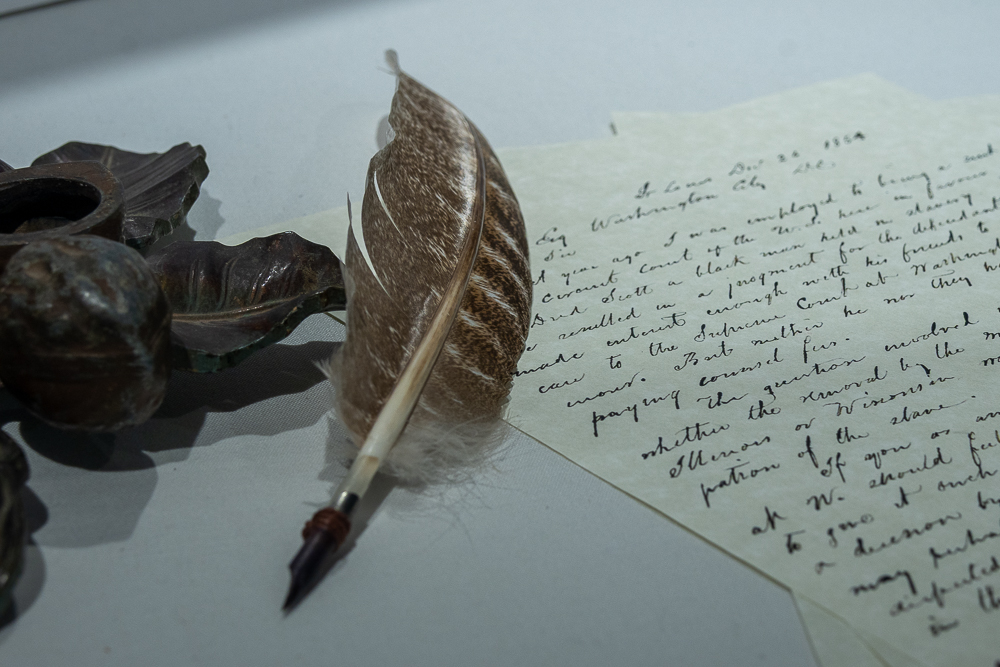 St Louis Decr 24 1854
Washington City D.C.
Sir
year ago I was employed to bring a suit
Circuit Court of the U.S. here in favour
Dred Scott a black man held in slavery
resulted in a judgment for the defendant
made interest enough with his friends to
case to the Supreme Court at Washing
But neither he nor they h
paying counsel fees.
The question involved
whether the removal by the m
Illinois or Wisconsin
pation of the slave.
If you
at W. should feel
to give it such
a decision
may perha
in th